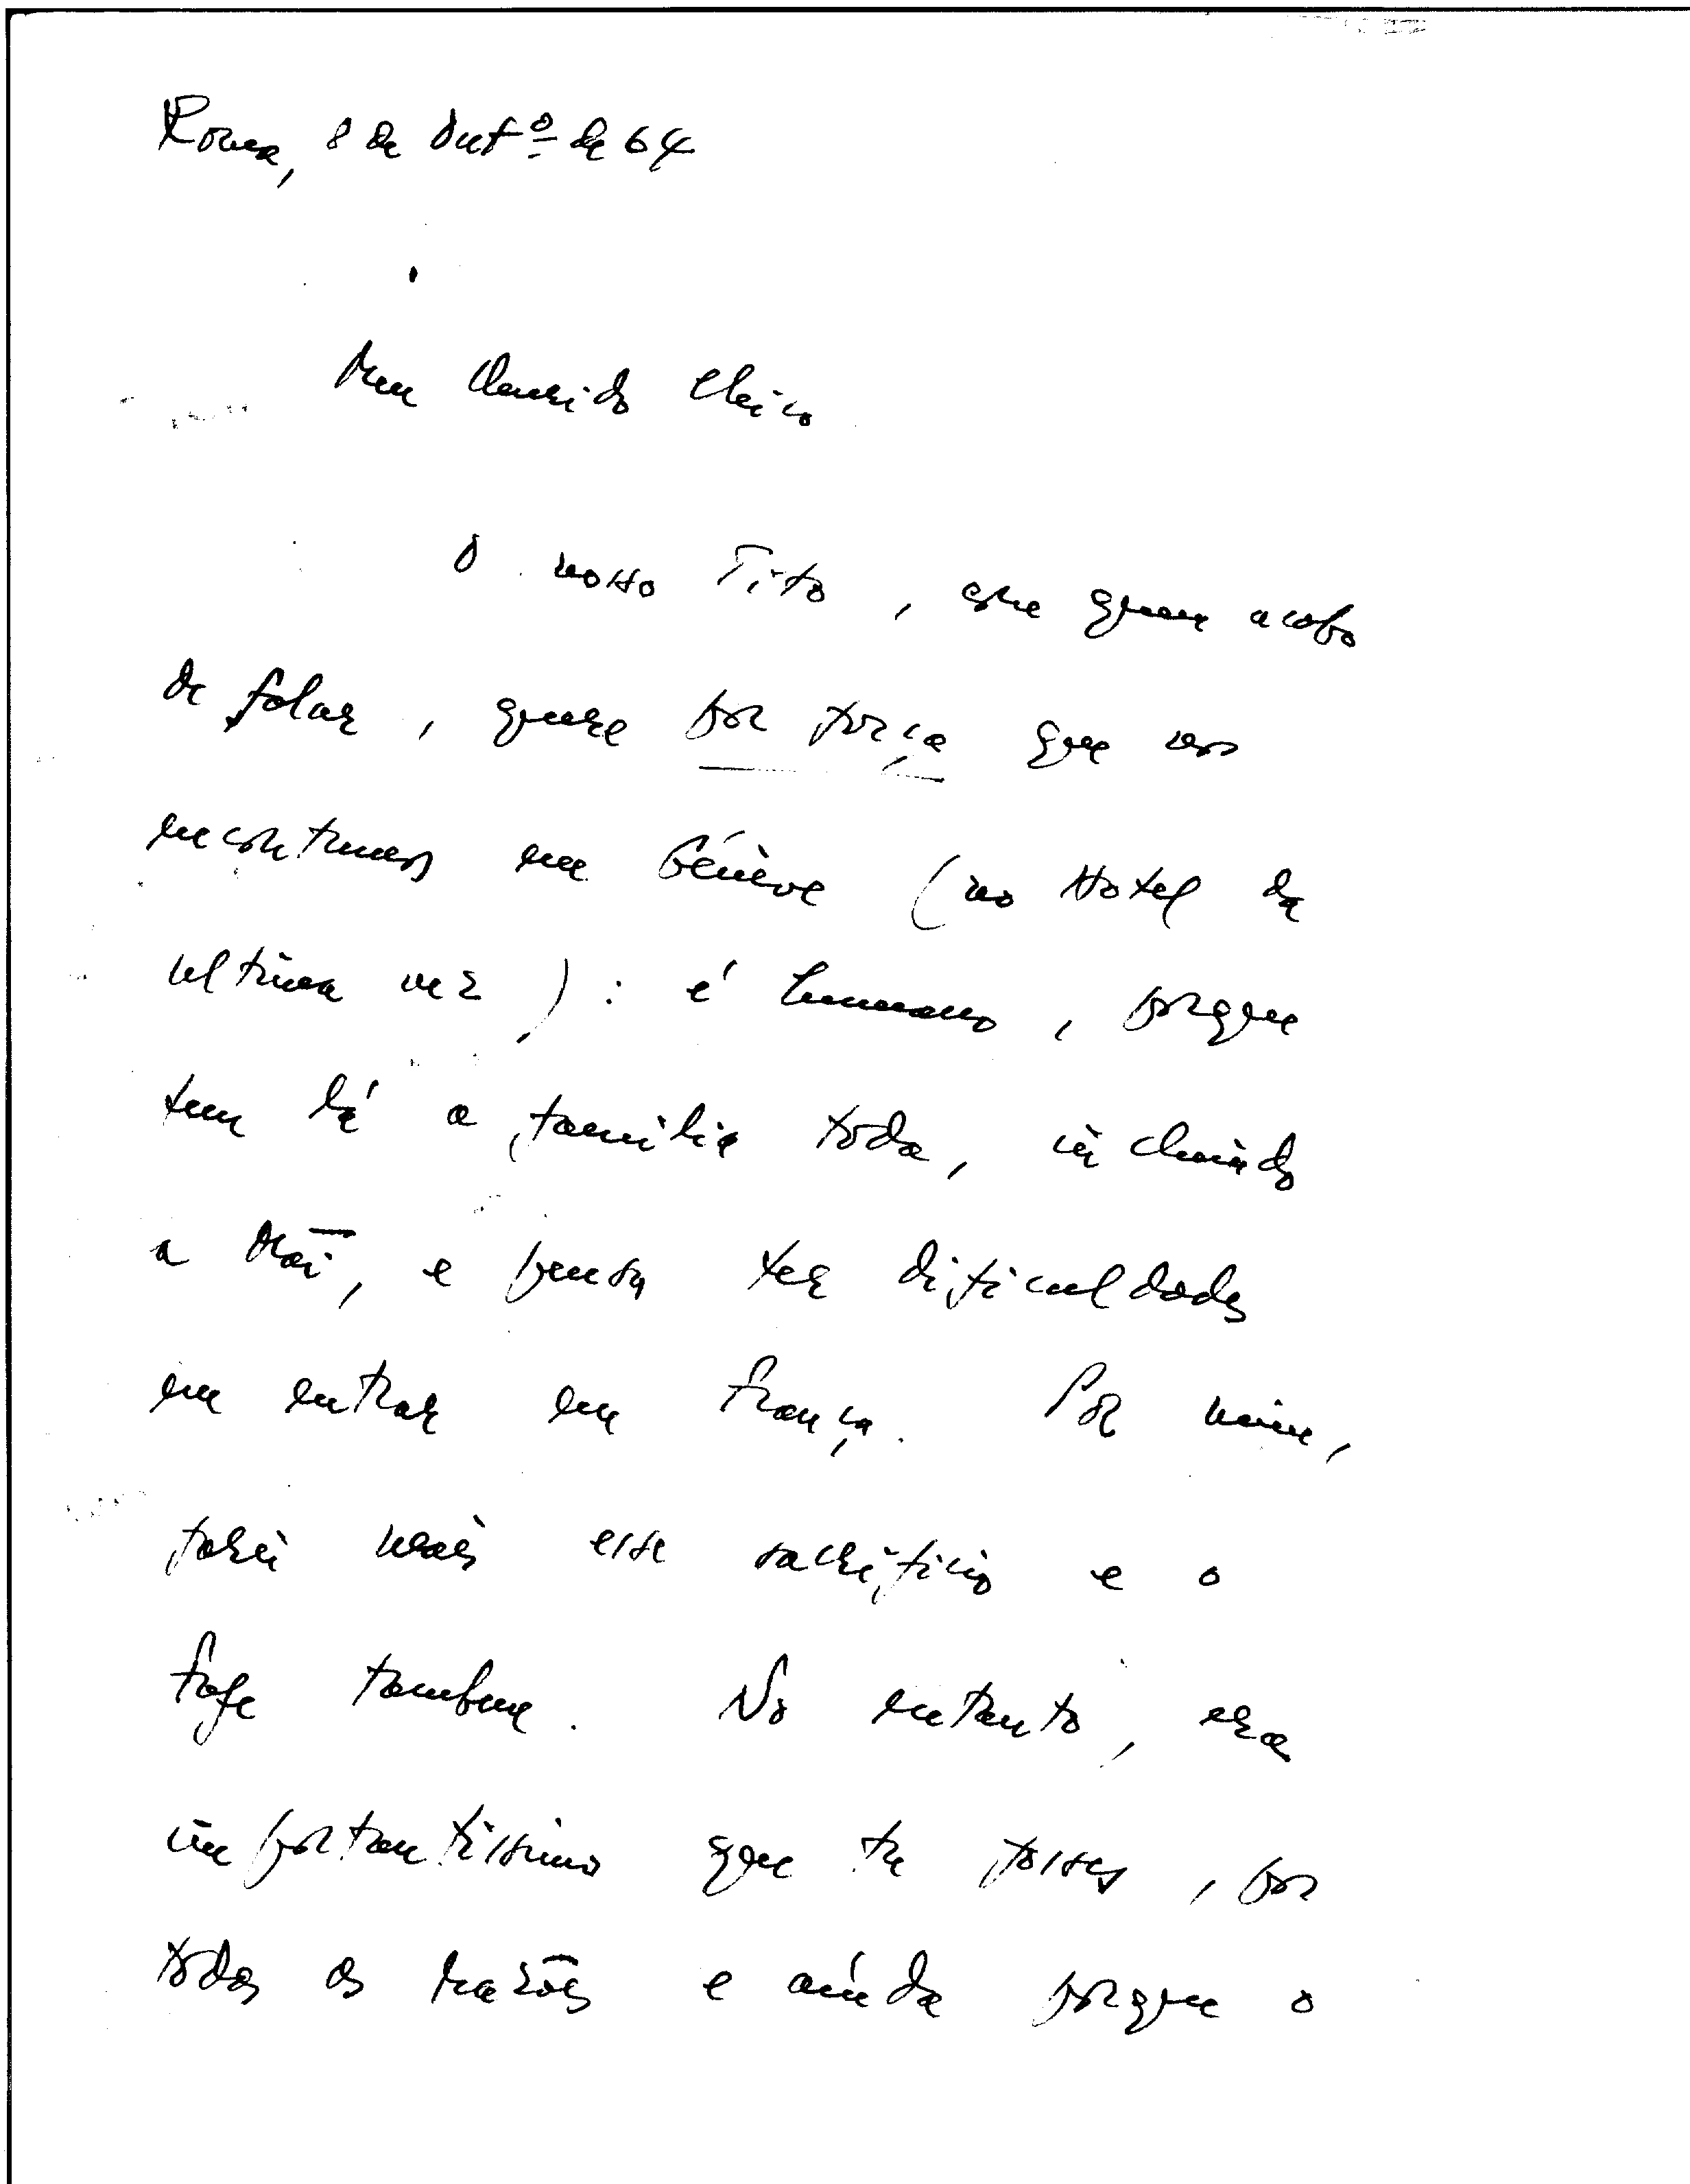 Roma, 8 de Outº de 64
Meu Querido Chico
O nosso Tito, com quem acabo
de falar, quere por força que nos
encontremos em Génève (no Hotel da
ultima vez): é humano, porque
tem lá a familia toda, incluindo
a Mãi, e pensa ter dificuldades
em entrar em França. Por mim,
farei mais esse sacrificio e o
tambem. No entanto, era
importantissimo que tu fosses, por
todas as razões e ainda porque o